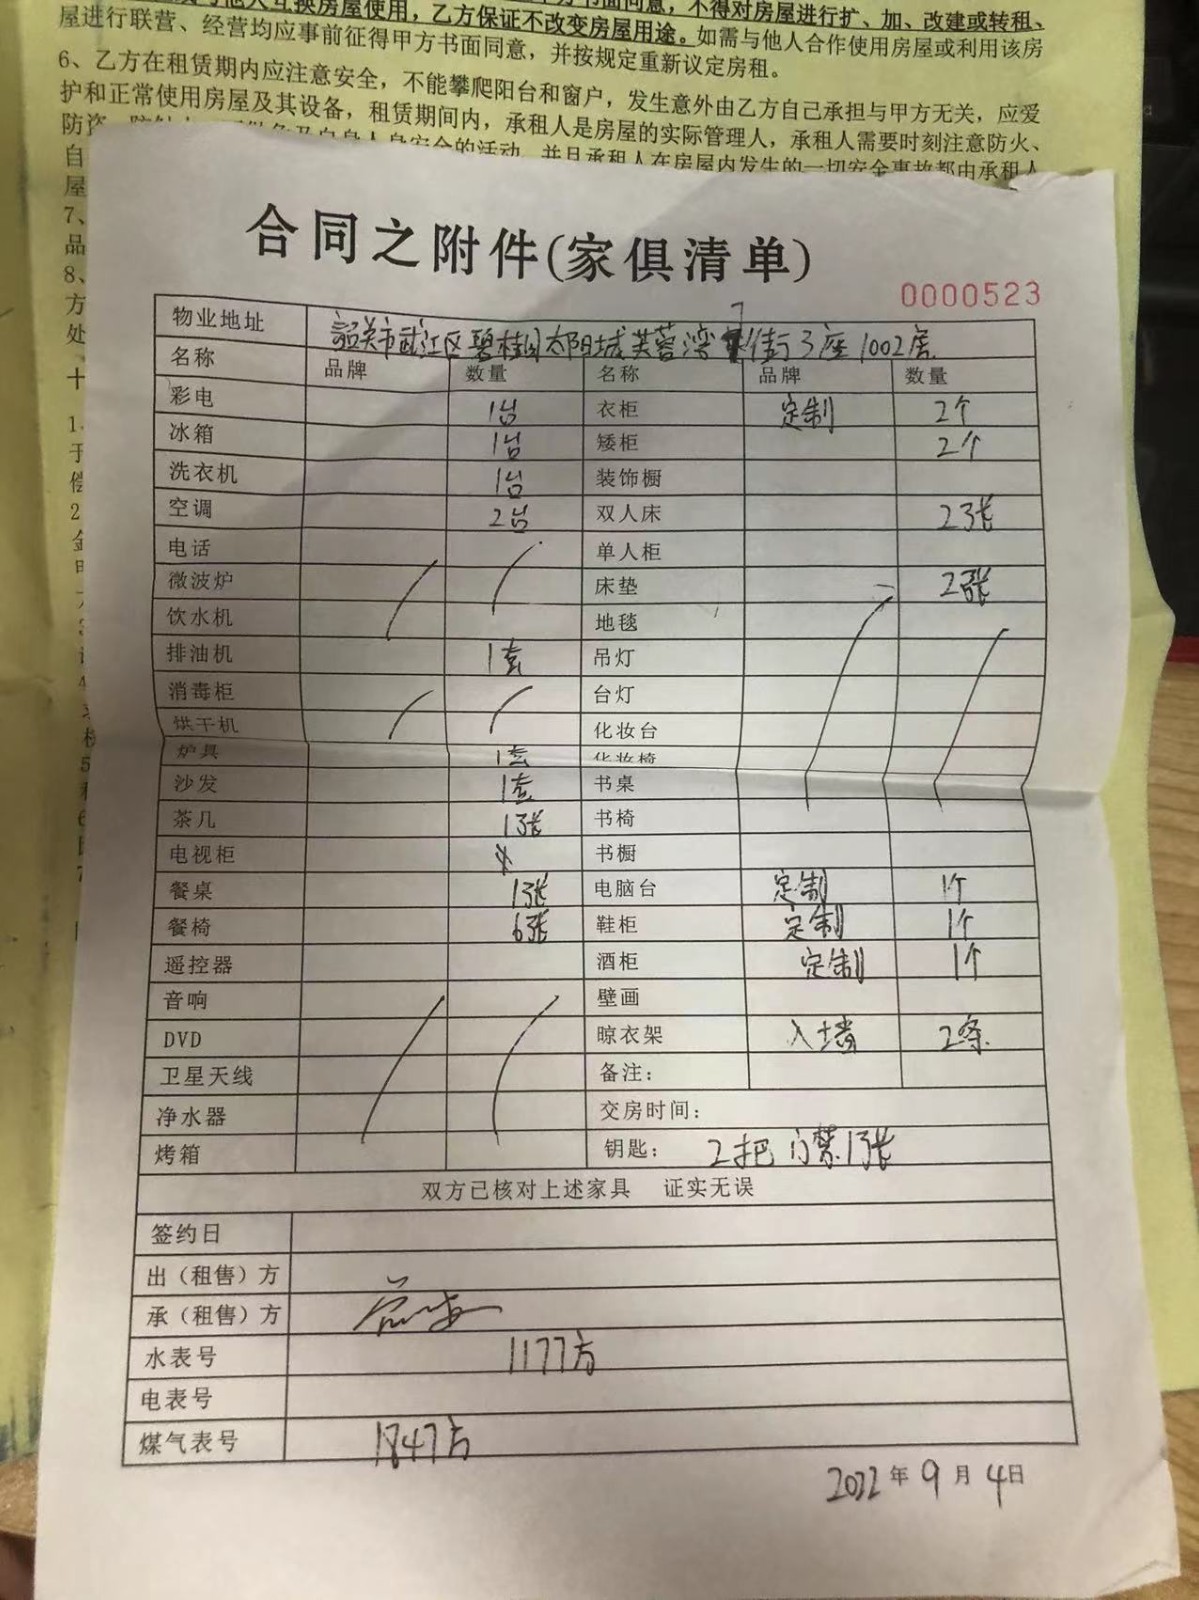 用，乙方保证不改变房屋用途。如需与他人合作使用房屋或利用该房
屋进行联营、经营均应事前征得甲方书面同意，并按规定重新议定房租。
6、乙方在租赁期内应注意安全，不能攀爬阳台和窗户，发生意外由乙方自己承担与甲方无关，应爱
护和正常使用房屋及其设备，租赁期间内，承租人是房屋的实际管理人，承租人需要时刻注意防火、
防盗
自身人身安全的活动，并且承租人在房屋内发生的一切安全事故都由承租人
屋
7、
品
8、
方
处
十
合同之附件(家俱清单)
0000523
物业地址 韶关市武江区碧桂园太阳城芙蓉湾 街3座1002房
名称 品牌 数量 名称 品牌 数量
彩电 1台 衣柜 定制 2个
冰箱 1台 矮柜 2个
洗衣机 1台 装饰橱
空调 2台 双人床 2张
电话 单人柜
微波炉 床垫 2张
饮水机 地毯
排油机 1套 吊灯
消毒柜 台灯
烘干机 化妆台
炉具 1套 化妆椅
沙发 1套 书桌
茶几 1张 书椅
电视柜 书橱
餐桌 1张 电脑台 定制 1个
餐椅 6张 鞋柜 定制 1个
遥控器 酒柜 定制 1个
音响 壁画
DVD 晾衣架 入墙 2条
卫星天线 备注：
净水器 交房时间：
烤箱 钥匙： 2把 门禁1张
双方已核对上述家具 证实无误
签约日
出（租售）方
承（租售）方
水表号 1177方
电表号
煤气表号 1847方
2022年9月4日